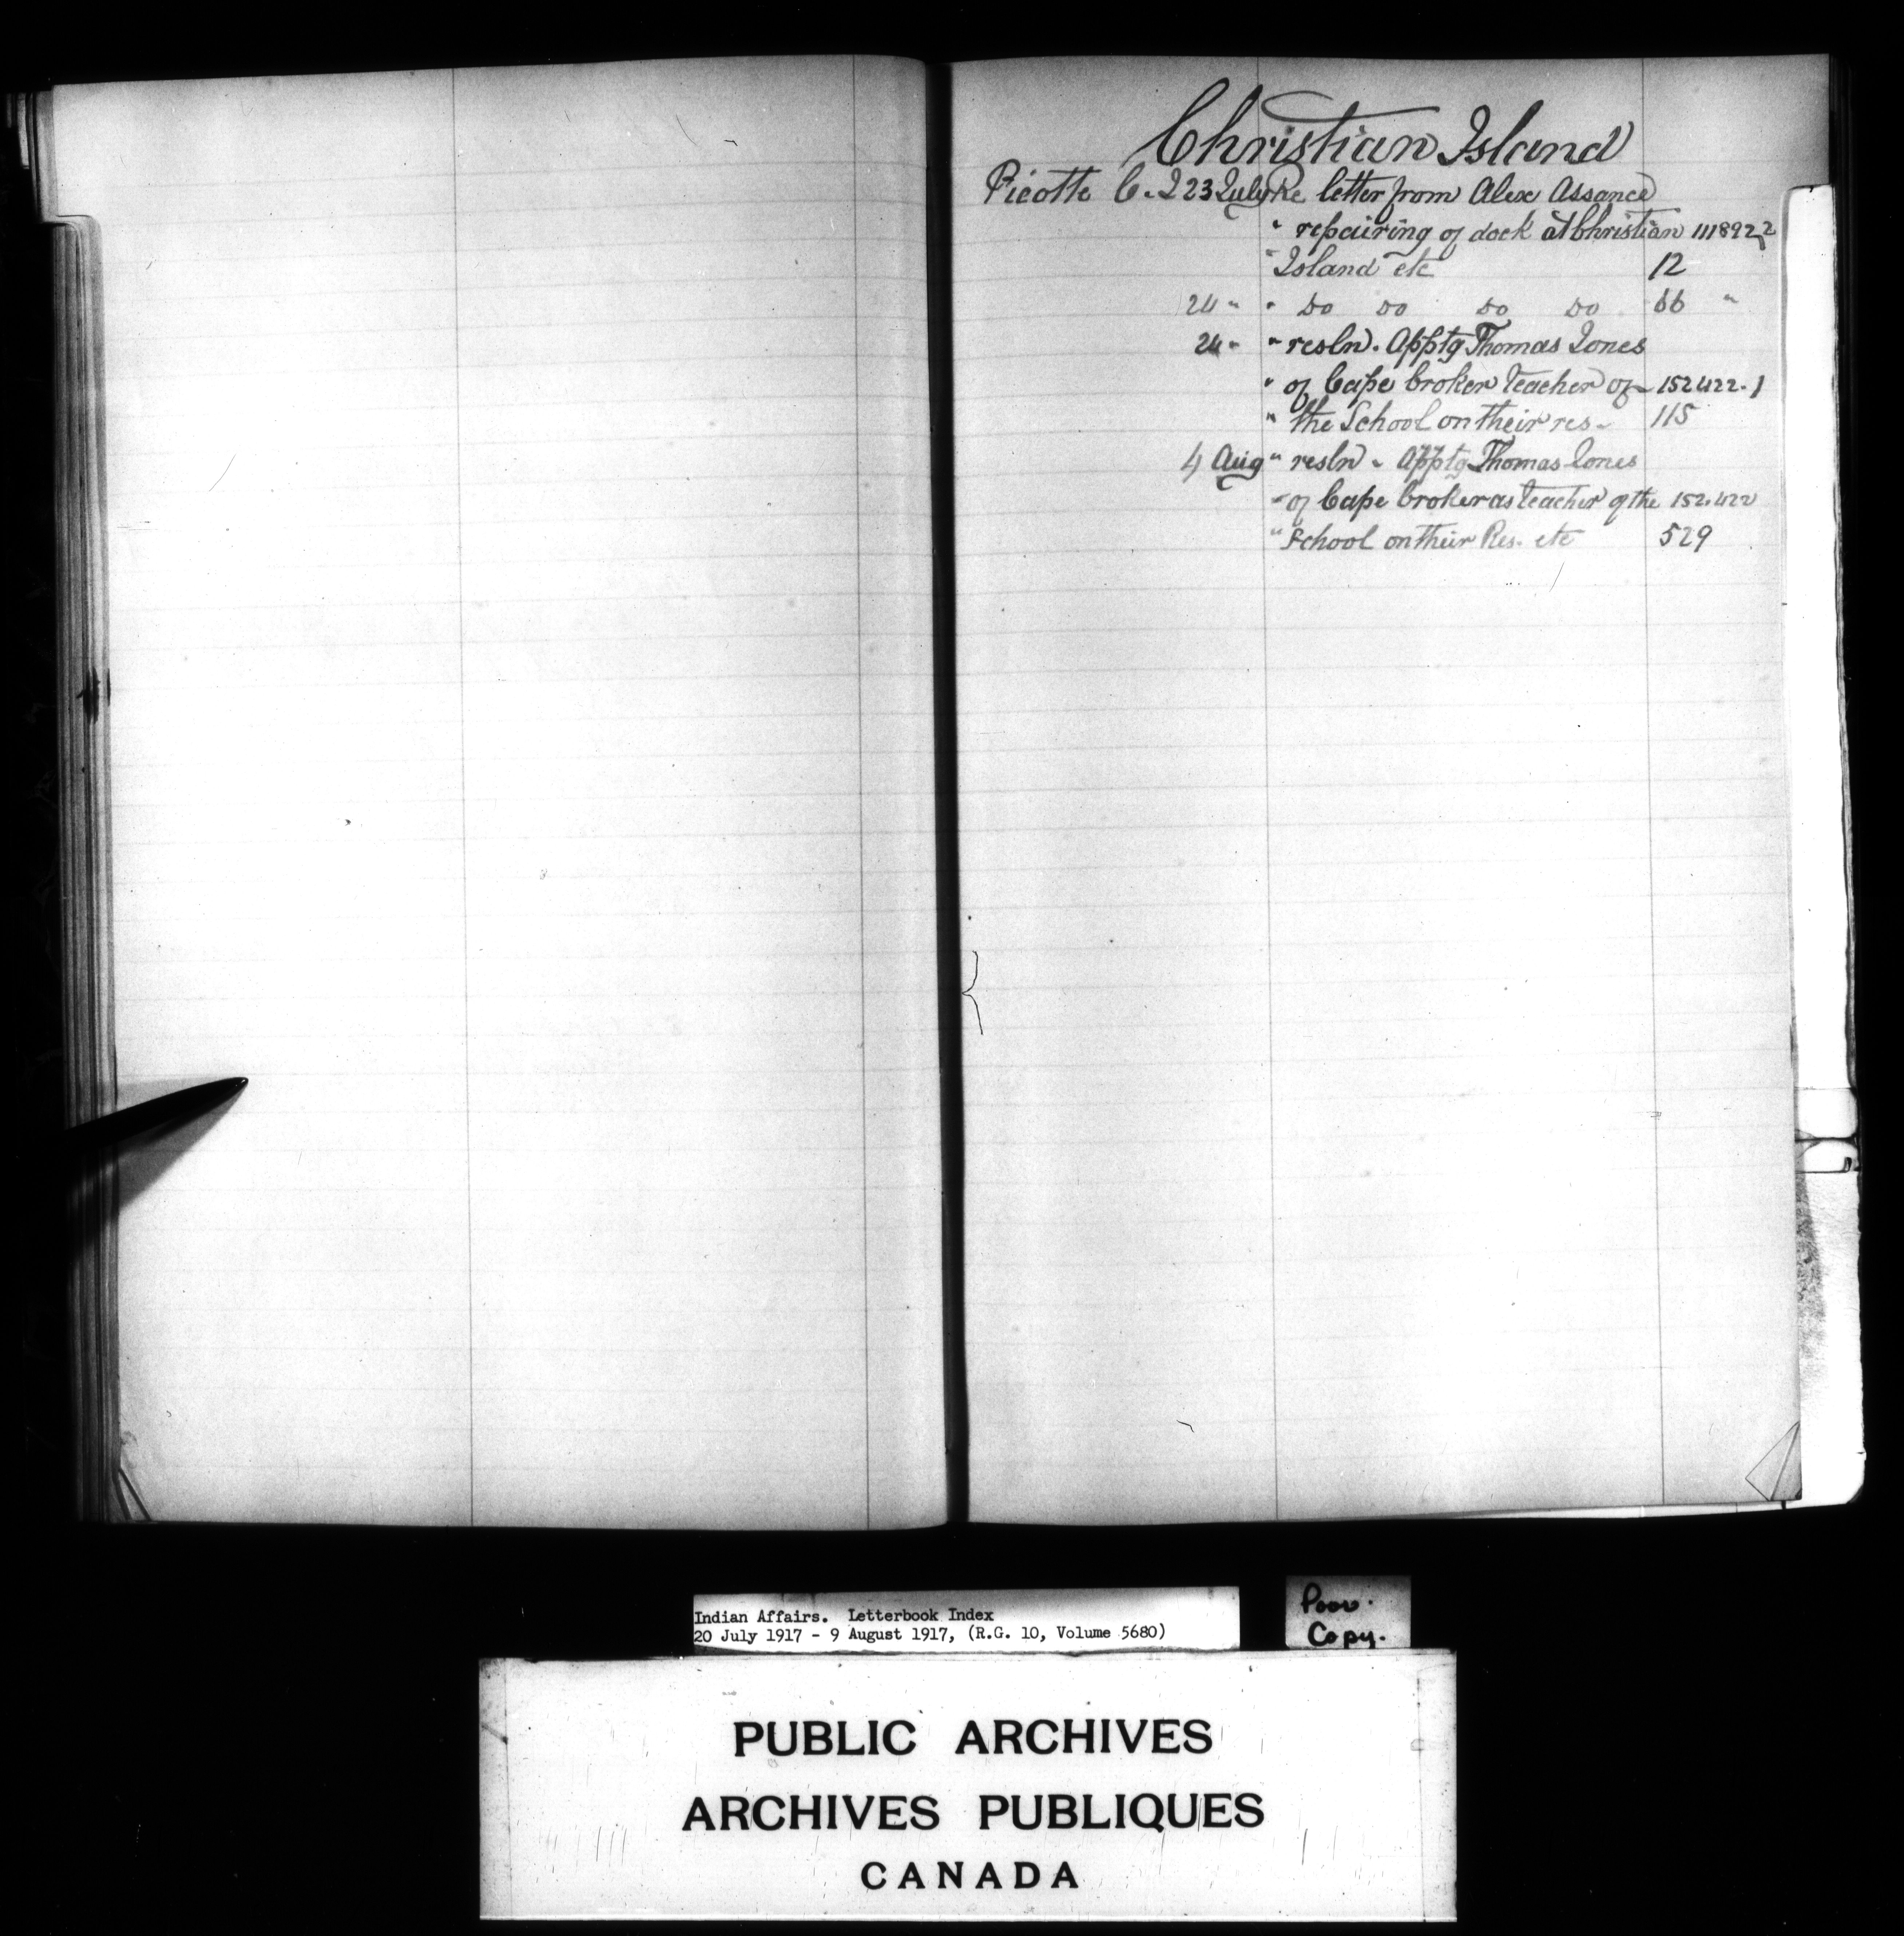 Christian Island
Picotte C. J 23 July Re letter from Alex Assance
" repairing of dock at Christian 111892,2
" Island etc 12
24 " " Do Do Do Do 66 "
24 " " resln. Apptg Thomas Jones
" of Cape Croker Teacher of 152422.1
" the School on their res. 115
4 Aug " resln. Apptg Thomas Jones
" of Cape Croker as Teacher of the 152.422
" School on their Res. etc 529
Indian Affairs. Letterbook Index
20 July 1917 - 9 August 1917, (R.G. 10, Volume 5680)
Poor.
Copy.
PUBLIC ARCHIVES
ARCHIVES PUBLIQUES
CANADA